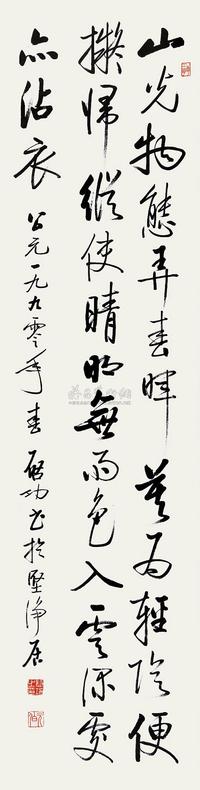 山光物態弄春暉莫為輕陰便
擬歸縱使晴明無雨色入雲深處
亦沾衣
公元一九九零年春啟功書於堅淨居